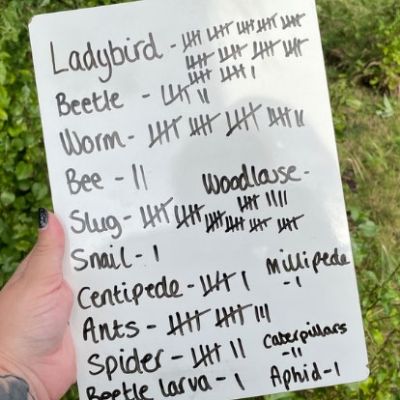 Ladybird - 卌 卌 卌 卌
卌 卌 卌 卌
卌 卌 |
Beetle - 卌 ||
Worm - 卌 卌 卌 卌 ||
Bee - ||
Woodlouse -
卌 ||||
Slug - 卌 卌 卌 卌 卌 卌
Snail - |
Centipede - 卌 |
Millipede
- |
Ants - 卌 卌 |||
Spider - 卌 ||
Caterpillars
- ||
Beetle larva - |
Aphid - |